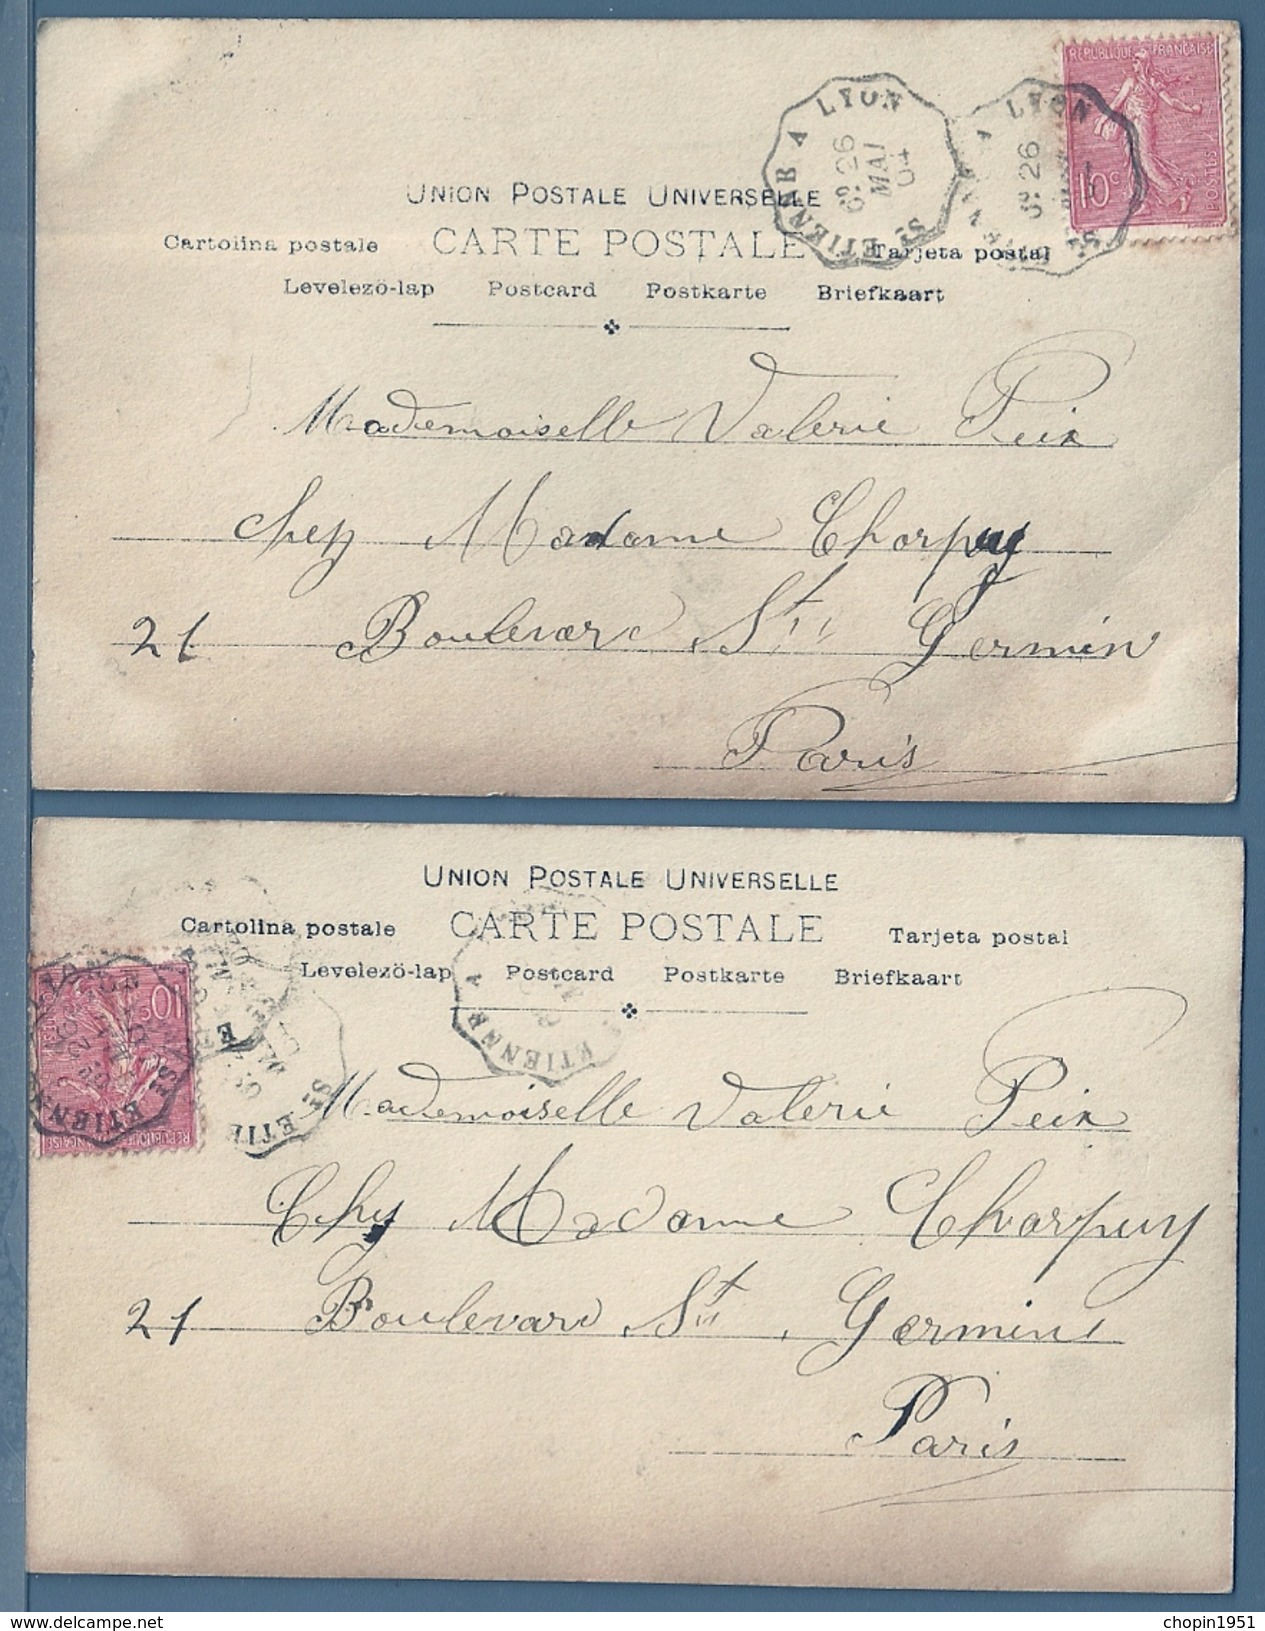 RÉPUBLIQUE FRANÇAISE
10c
POSTES
ST ETIENNE B A LYON
6° 26
MAI
04
A LYON
26
UNION POSTALE UNIVERSELLE
Cartolina postale CARTE POSTALE Tarjeta postal
Levelezö-lap Postcard Postkarte Briefkaart
Mademoiselle Valerie Peix
chez Madame Charpuy
21 Boulevard St Germin
Paris
UNION POSTALE UNIVERSELLE
Cartolina postale CARTE POSTALE Tarjeta postal
Levelezö-lap Postcard Postkarte Briefkaart
10c
ETIENNE A
ST ETIENN
Mademoiselle Valerie Peix
Chez Madame Charpuy
21 Boulevard St Germins
Paris
chopin1951